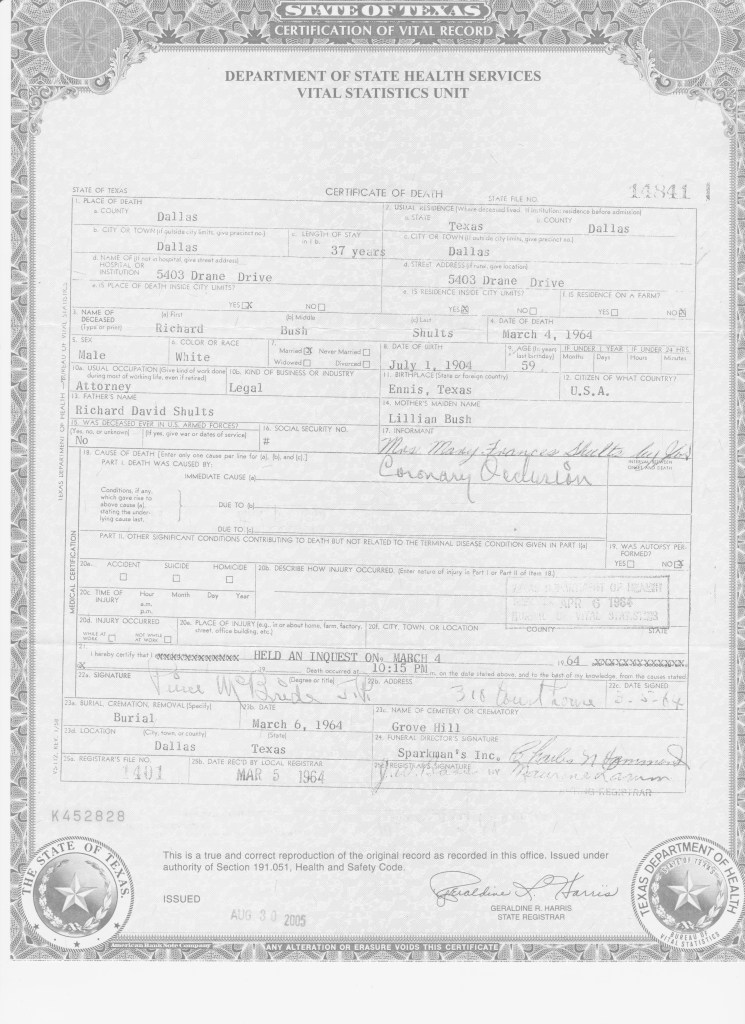 STATE OF TEXAS
CERTIFICATION OF VITAL RECORD
DEPARTMENT OF STATE HEALTH SERVICES
VITAL STATISTICS UNIT
STATE OF TEXAS CERTIFICATE OF DEATH STATE FILE NO. 14841
1. PLACE OF DEATH 2. USUAL RESIDENCE (Where deceased lived. If institution: residence before admission)
a. COUNTY Dallas a. STATE Texas b. COUNTY Dallas
b. CITY OR TOWN (If outside city limits, give precinct no.) Dallas c. LENGTH OF STAY 37 years c. CITY OR TOWN (If outside city limits, give precinct no.) Dallas
d. NAME OF (If not in hospital, give street address) HOSPITAL OR INSTITUTION 5403 Drane Drive d. STREET ADDRESS (If rural, give location) 5403 Drane Drive
e. IS PLACE OF DEATH INSIDE CITY LIMITS? YES X NO e. IS RESIDENCE INSIDE CITY LIMITS? YES X NO f. IS RESIDENCE ON A FARM? YES NO X
3. NAME OF DECEASED (Type or print) (a) First Richard (b) Middle Bush (c) Last Shults 4. DATE OF DEATH March 4, 1964
5. SEX Male 6. COLOR OR RACE White 7. Married X Never Married Widowed Divorced 8. DATE OF BIRTH July 1, 1904 9. AGE (In years last birthday) 59 IF UNDER 1 YEAR Months Days IF UNDER 24 HRS. Hours Minutes
10a. USUAL OCCUPATION (Give kind of work done during most of working life, even if retired) Attorney 10b. KIND OF BUSINESS OR INDUSTRY Legal 11. BIRTHPLACE (State or foreign country) Ennis, Texas 12. CITIZEN OF WHAT COUNTRY? U.S.A.
13. FATHER'S NAME Richard David Shults 14. MOTHER'S MAIDEN NAME Lillian Bush
15. WAS DECEASED EVER IN U.S. ARMED FORCES? (Yes, no, or unknown) No (If yes, give war or dates of service) 16. SOCIAL SECURITY NO. # 17. INFORMANT Mrs. Mary Frances Shults
18. CAUSE OF DEATH [Enter only one cause per line for (a), (b), and (c).]
PART I. DEATH WAS CAUSED BY:
IMMEDIATE CAUSE (a) Coronary Occlusion
Conditions, if any which gave rise to above cause (a), stating the underlying cause last.
DUE TO (b)
DUE TO (c)
PART II. OTHER SIGNIFICANT CONDITIONS CONTRIBUTING TO DEATH BUT NOT RELATED TO THE TERMINAL DISEASE CONDITION GIVEN IN PART I(a) 19. WAS AUTOPSY PERFORMED? YES NO X
20a. ACCIDENT SUICIDE HOMICIDE 20b. DESCRIBE HOW INJURY OCCURRED. (Enter nature of injury in Part I or Part II of item 18.)
20c. TIME OF INJURY Hour a.m. p.m. Month Day Year
DEPARTMENT OF HEALTH
APR 6 1964
VITAL STATISTICS
20d. INJURY OCCURRED WHILE AT WORK NOT WHILE AT WORK 20e. PLACE OF INJURY (e.g., in or about home, farm, factory, street, office building, etc.) 20f. CITY, TOWN, OR LOCATION COUNTY STATE
21. I hereby certify that I HELD AN INQUEST ON, MARCH 4 1964
Death occurred at 10:15 PM m. on the date stated above, and to the best of my knowledge, from the causes stated.
22a. SIGNATURE (Degree or title) 22b. ADDRESS 318 Courthouse 22c. DATE SIGNED
23a. BURIAL, CREMATION, REMOVAL (Specify) Burial 23b. DATE March 6, 1964 23c. NAME OF CEMETERY OR CREMATORY Grove Hill
23d. LOCATION (City, town, or county) Dallas (State) Texas 24. FUNERAL DIRECTOR'S SIGNATURE Sparkman's Inc.
25a. REGISTRAR'S FILE NO. 1401 25b. DATE REC'D BY LOCAL REGISTRAR MAR 5 1964 25c. REGISTRAR'S SIGNATURE
REGISTRAR
MEDICAL CERTIFICATION
TEXAS DEPARTMENT OF HEALTH — BUREAU OF VITAL STATISTICS
K452828
This is a true and correct reproduction of the original record as recorded in this office. Issued under
authority of Section 191.051, Health and Safety Code.
ISSUED
AUG 30 2005
Geraldine R. Harris
GERALDINE R. HARRIS
STATE REGISTRAR
THE STATE OF TEXAS.
TEXAS DEPARTMENT OF HEALTH
BUREAU OF VITAL STATISTICS
American Bank Note Company
ANY ALTERATION OR ERASURE VOIDS THIS CERTIFICATE